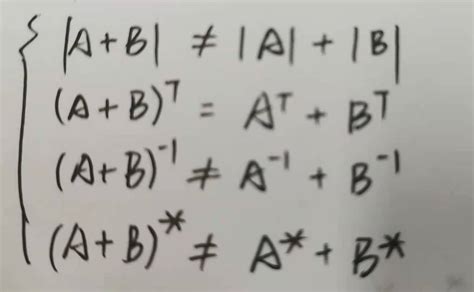 |A+B| ≠ |A| + |B|
(A+B)ᵀ = Aᵀ + Bᵀ
(A+B)⁻¹ ≠ A⁻¹ + B⁻¹
(A+B)* ≠ A* + B*